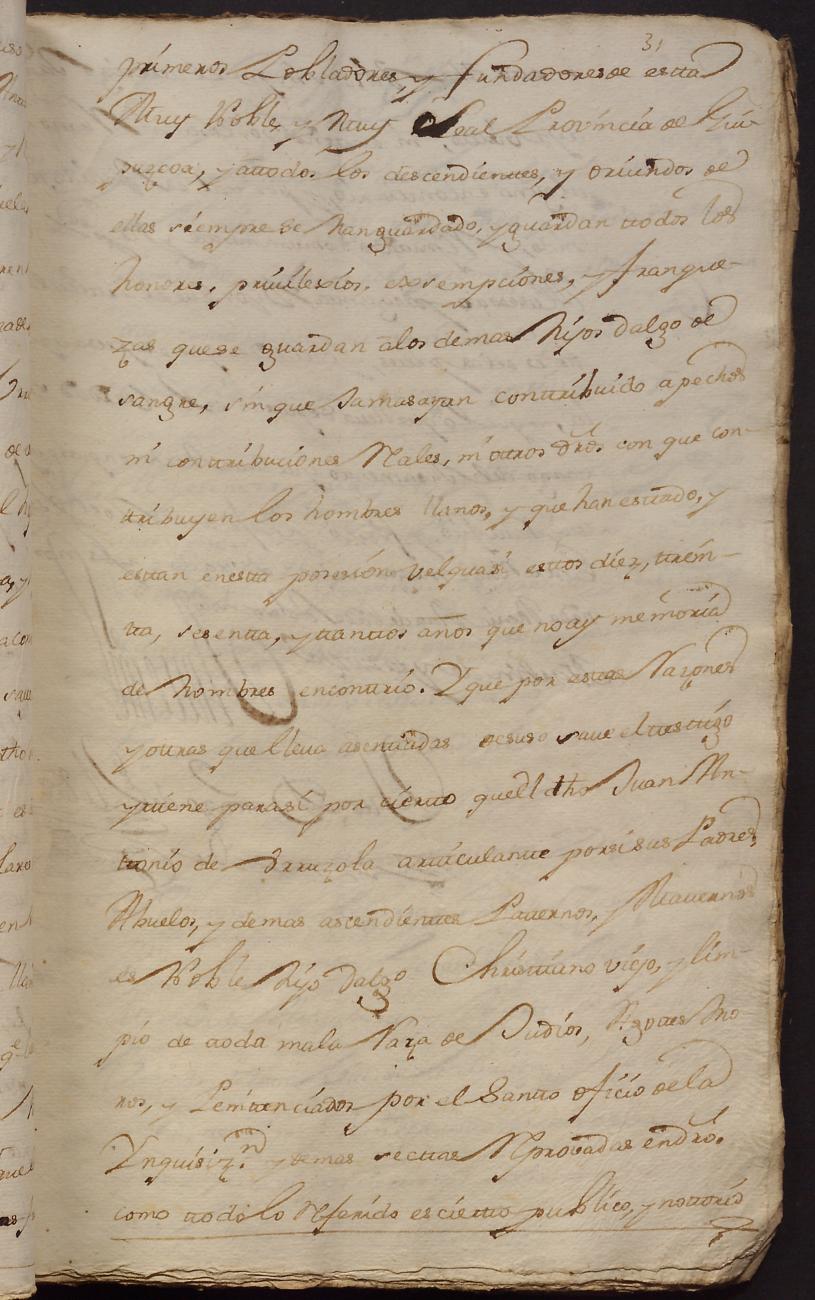 31
primeros Pobladores, y fundadores de estta
Muy Noble, y Muy Leal Provincia de Gui-
puzcoa, y attodos los descendienttes, y oriundos de
ellas siempre se han guardado, y guardan ttodos los
honores, privilexios, exsempciones, y franque-
zas que se guardan a los demas hijos dalgo de
sangre, sin que Jamas ayan conttribuido a pechos
ni conttribuciones Rales, ni ottros dros. con que con-
ttribuyen los hombres llanos, y que han esttado, y
esttan en estta posesion velquasi esttos diez, ttrein-
tta, sesentta, y ttanttos años que no ay memoria
de hombres en conttrio. Y que por esttas Razones
y ottras que lleva asenttadas de suso save el ttesttigo
y ttiene para si por ciertto que el dho Juan An-
ttonio de Urruzola artticulantte por si sus Padres
Abuelos, y demas ascendienttes Patternos, y Matternos
es Noble hijo Dalgo Christtiano viejo, y lim-
pio de ttoda mala Raza de Judios, Agottes Mo
ros, y Penittenciados por el Santto oficio de la
Ynquisizn. y demas secttas Reprovadas en dro.
como ttodo lo Referido es ciertto publico, y nottorio